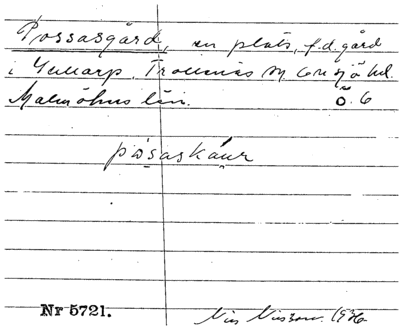 Possasgård, en plats, f.d. gård
i Yllarp. Trollenäs sn Onsjö hd.
Malmöhus län. Ö. 6
pósaskáur
Nr 5721.
Nils Nilsson. 1936